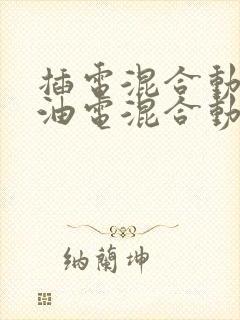 插電混合動
油電混合動
納蘭坤